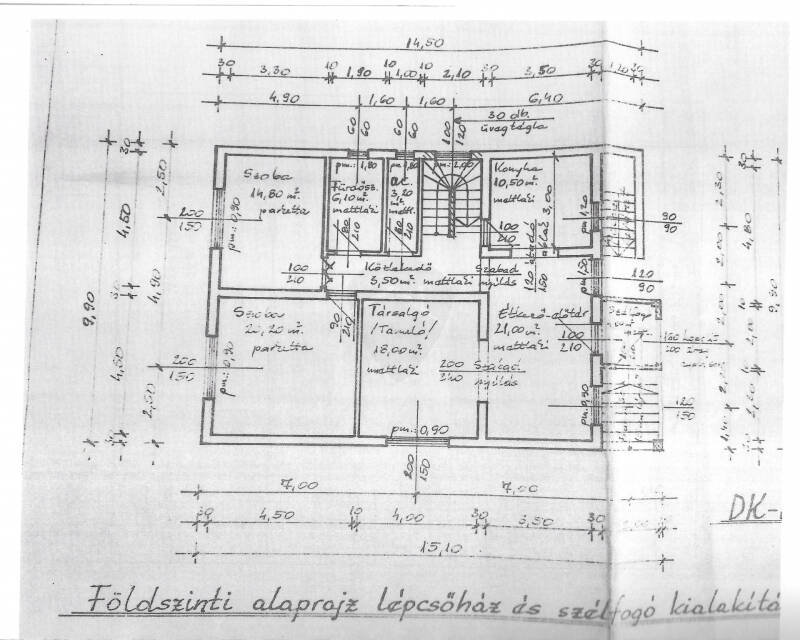 14,50
30 3,30 10 1,90 10 1,00 10 2,10 30 3,50 30 1,20
4,90 1,60 1,60 6,40
30 db.
üvegtégla
60 60 100
60 60 120
pm.: 1,80 pm.: 1,80 pm.: 2,00
Szoba
14,80 m².
parketta
Fürdősz.
6,10 m².
mettlachi
WC.
3,20
m².
mettl.
Konyha
10,50 m².
mettlachi
200
150
pm.: 0,90
80
210
80
210
100
210
3,00
90
90
100
210
Közlekedő
3,50 m². mettlachi
Szabad
nyílás
120
150
120
90
90
210
Szoba
20,20 m².
parketta
Társalgó
/Tanuló/
18,00 m².
mettlachi
Étkező-előtér
21,00 m².
mettlachi
100
210
200
150
pm.: 0,90
200
210
nyílás
pm.: 0,90
120
150
pm.: 0,90
200
150
30
2,50
4,50
30
4,90
9,90
4,00
2,50
4,80
9,90
7,00 7,00
30 4,50 10 4,00 30 5,50 30 2,00
15,10
DK-
Földszinti alaprajz lépcsőház és szélfogó kialakítá